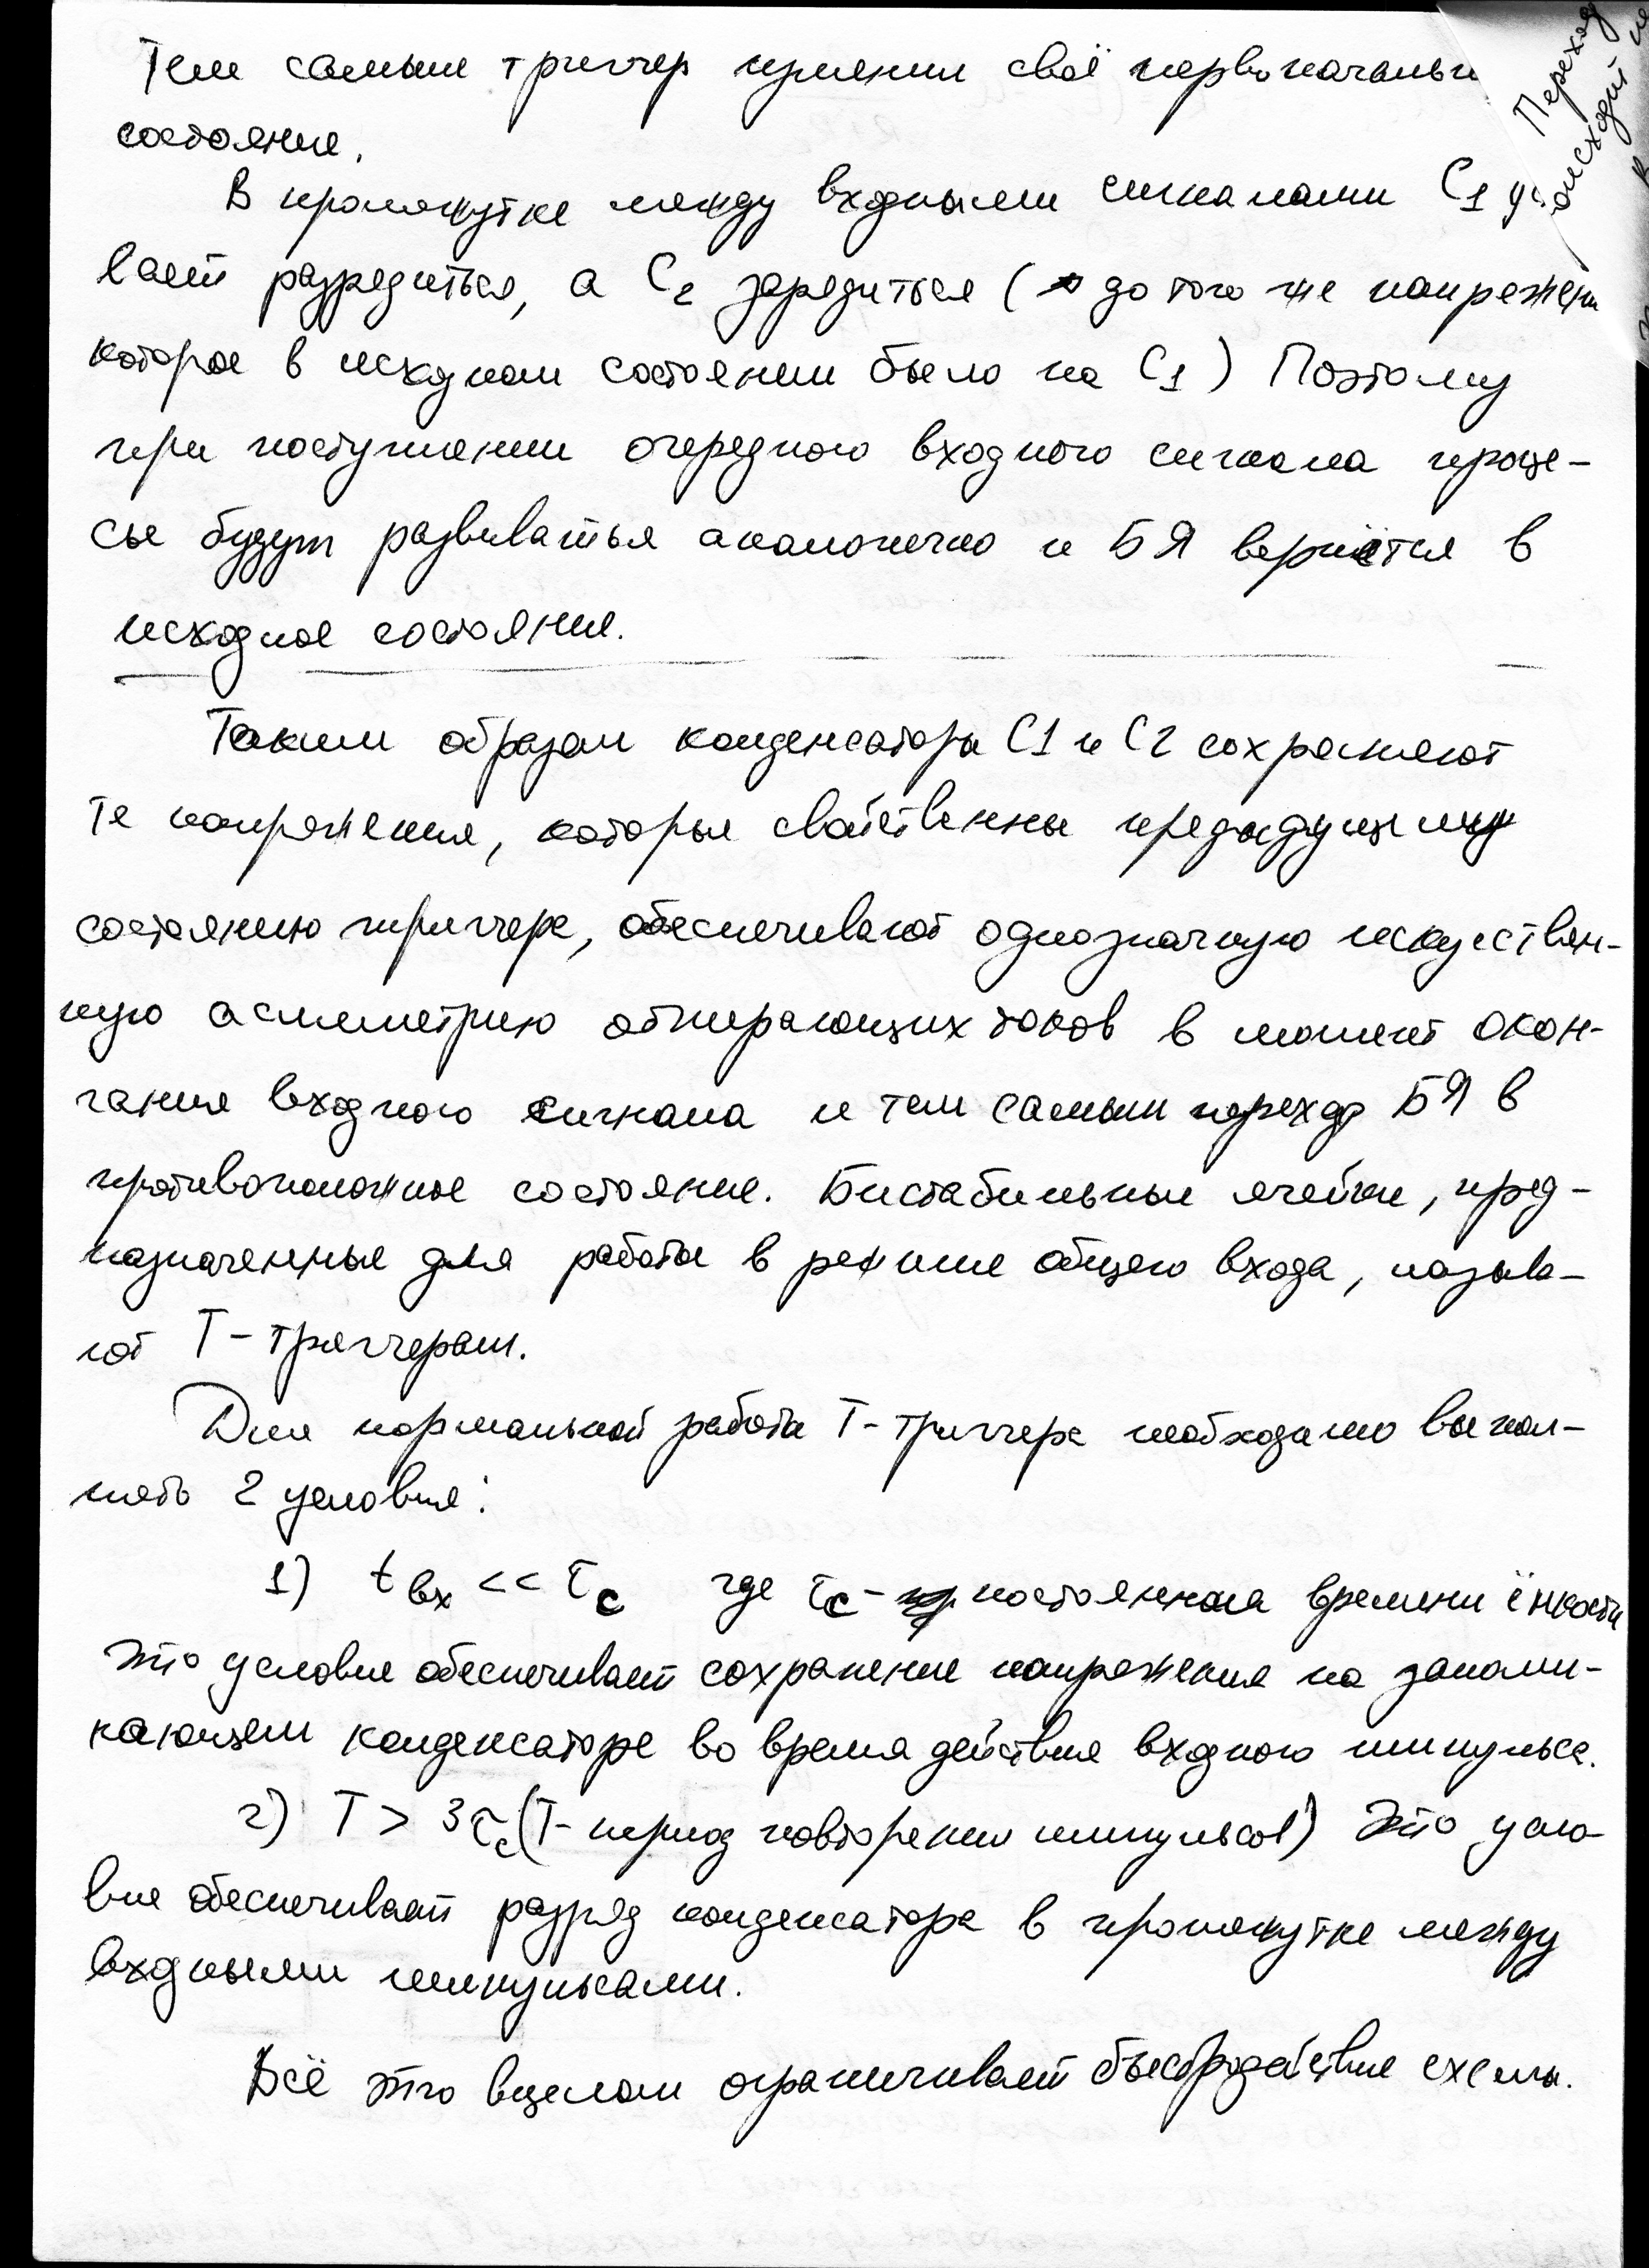 Тем самым триггер изменил своё первоначальн
состояние.
В промежутке между входными сигналами C1 ус
вает разрядиться, а C2 зарядиться (до того же напряжени
которое в исходном состоянии было на C1) Поэтому
при поступлении очередного входного сигнала проце-
ссы будут развиваться аналогично и БЯ вернётся в
исходное состояние.
Таким образом конденсаторы C1 и C2 сохраняют
те напряжения, которые свойственны предыдущему
состоянию триггера, обеспечивают однозначную искуствен-
ную асимметрию отпирающих токов в момент окон-
чания входного сигнала и тем самым переход БЯ в
противоположное состояние. Бистабильные ячейки, пред-
назначенные для работы в режиме общего входа, называ-
ют Т-триггерами.
Для нормальной работы Т-триггера необходимо выпол-
нять 2 условия:
1) tвх << τc где τc - постоянная времени ёмкости
Это условие обеспечивает сохранение напряжения на запоми-
нающем конденсаторе во время действия входного импульса.
2) T > 3τc (T - период повторения импульсов) Это усло-
вие обеспечивает разряд конденсатора в промежутке между
входными импульсами.
Всё это вцелом ограничивает быстродействие схемы.
Переход
оисходит